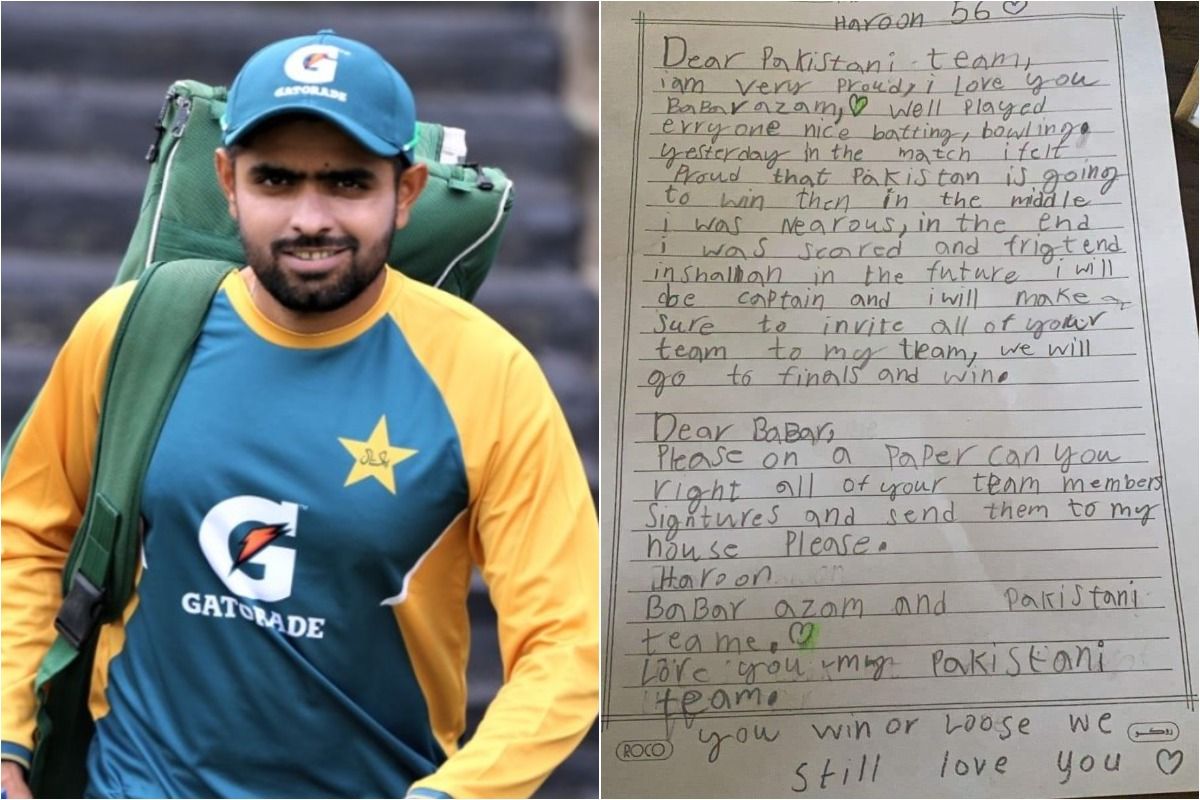 G
GATORADE
G
GATORADE
Haroon 56 ♡
Dear Pakistani team,
i am very proud, i Love you
BaBar azam, ♡ well Played
erryone nice batting, bowling.
yesterday in the match i felt
Proud that Pakistan is going
to win then in the middle
i was nearous, in the end
i was scared and frigtend
inshallah in the future i will
be captain and i will make
sure to invite all of your
team to my team, we will
go to finals and win.
Dear BaBar,
Please on a PaPer can you
right all of your team members
signtures and send them to my
house Please.
Haroon
BaBar azam and Pakistani
teame. ♡
Love you my Pakistani
team.
you win or Loose we
still love you ♡
ROCO
روكو